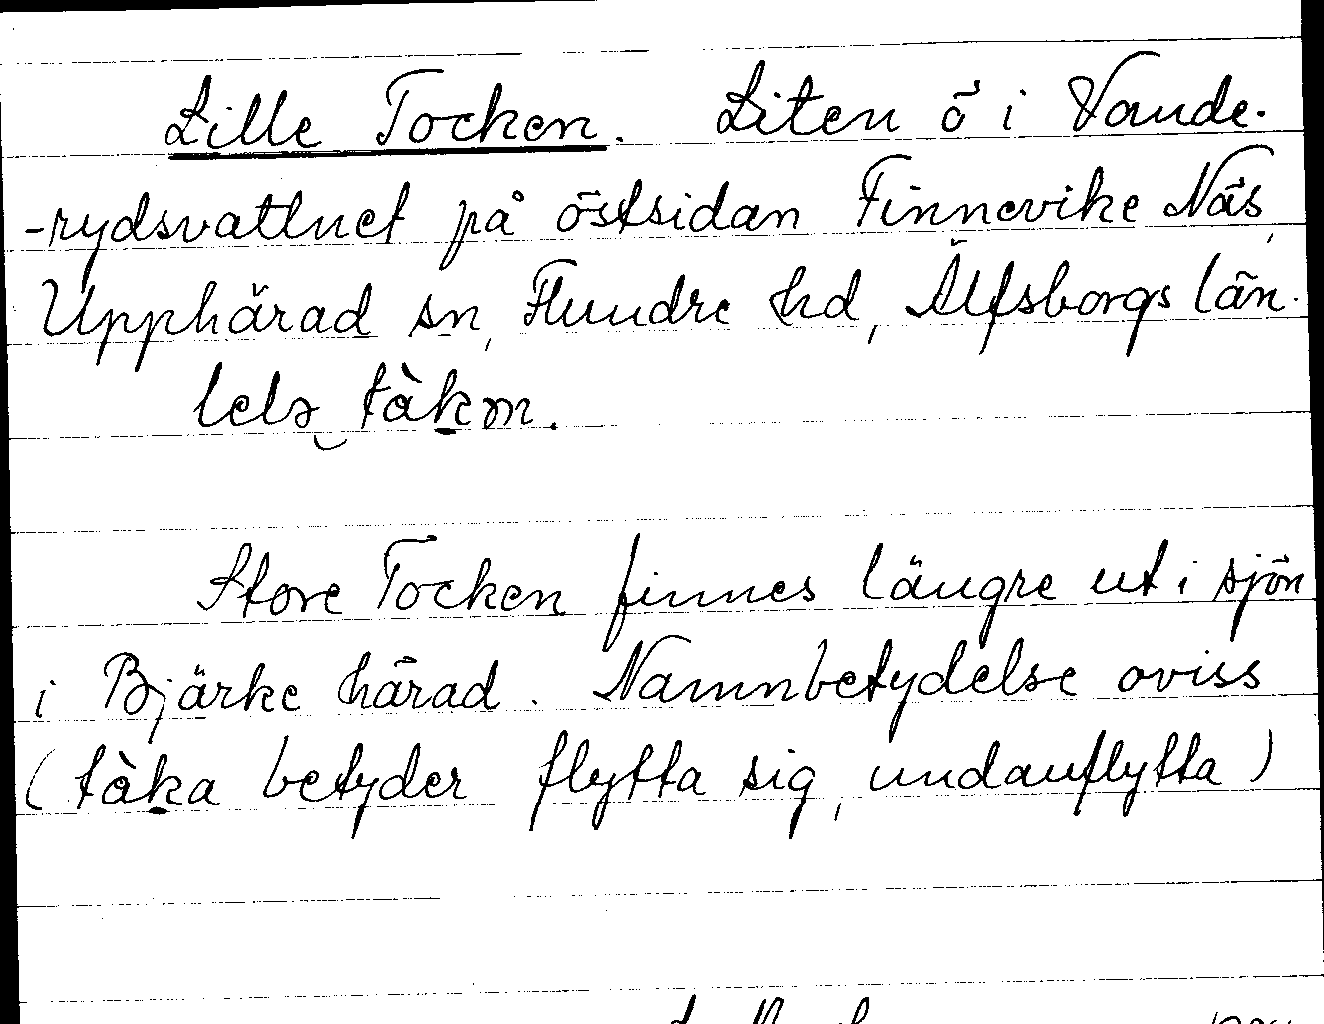 Lille Tocken. Liten ö i Vande-
-rydsvattnet på östsidan Finnevike Näs,
Upphärad sn, Flundre hd, Älfsborgs län.
lelə tàkən.
Store Tocken finnes längre ut i sjön
i Bjärke härad. Namnbetydelse oviss
(tàka betyder flytta sig, undanflytta)